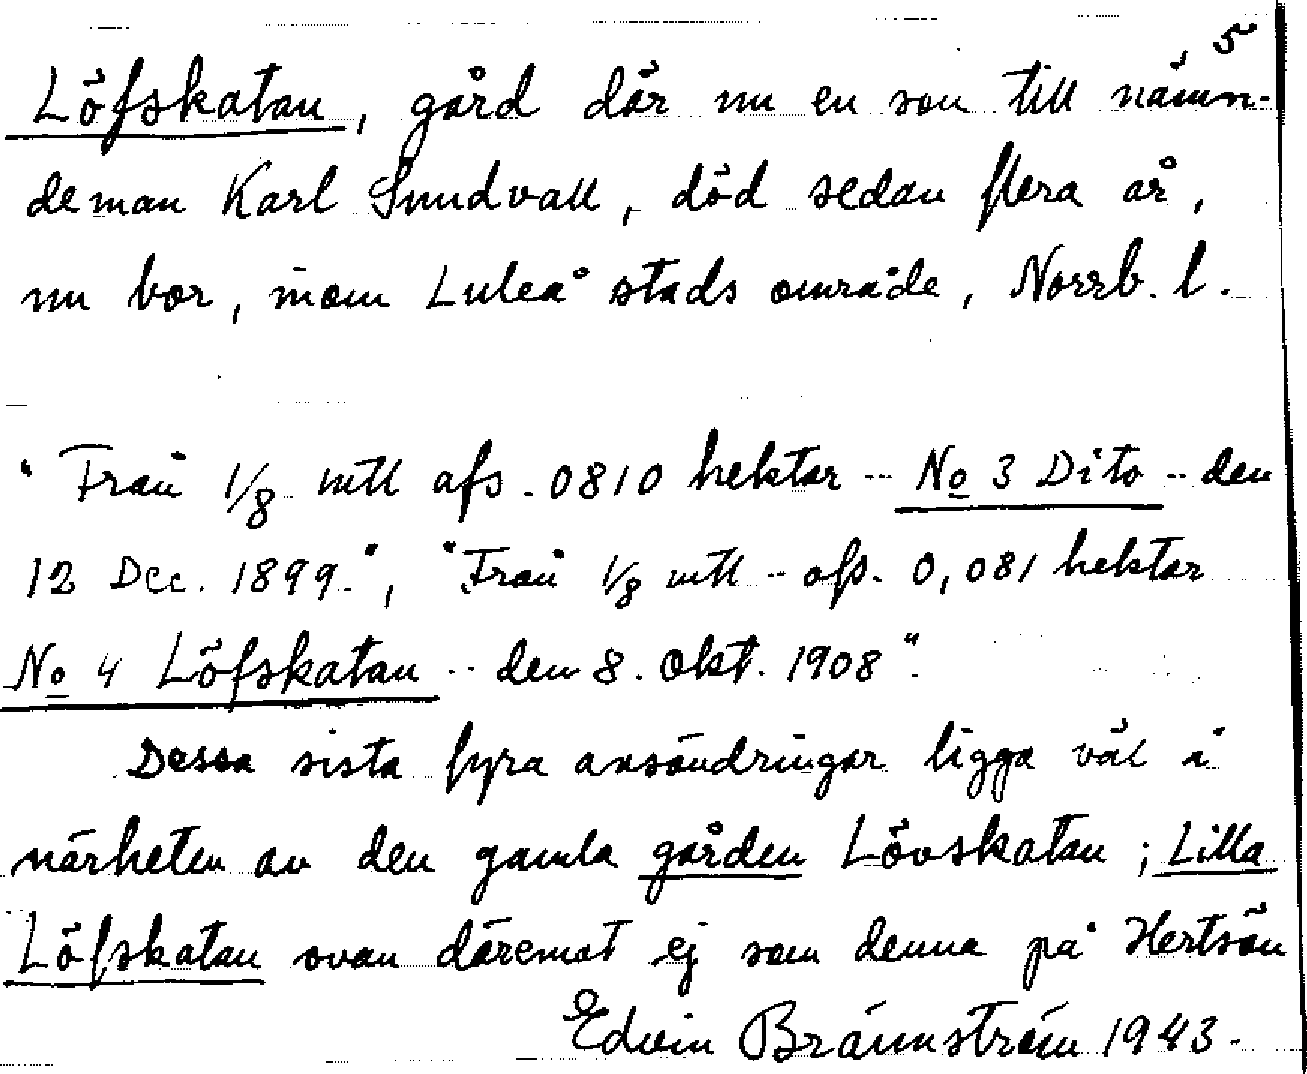 5
Löfskatan, gård där nu en son till nämn-
deman Karl Sundvall, död sedan flera år,
nu bor, inom Luleå stads område, Norrb. l.
"Från 1/8 mtl afs. 0810 hektar -- No 3 Dito -- den
12 Dec. 1899.", "Från 1/8 mtl -- afs. 0,081 hektar
No 4 Löfskatan -- den 8. Okt. 1908".
Dessa sista fyra avsöndringar ligga väl i
närheten av den gamla gården Lövskatan; Lilla
Löfskatan ovan däremot ej som denna på Hertsön
Edvin Brännström 1943.